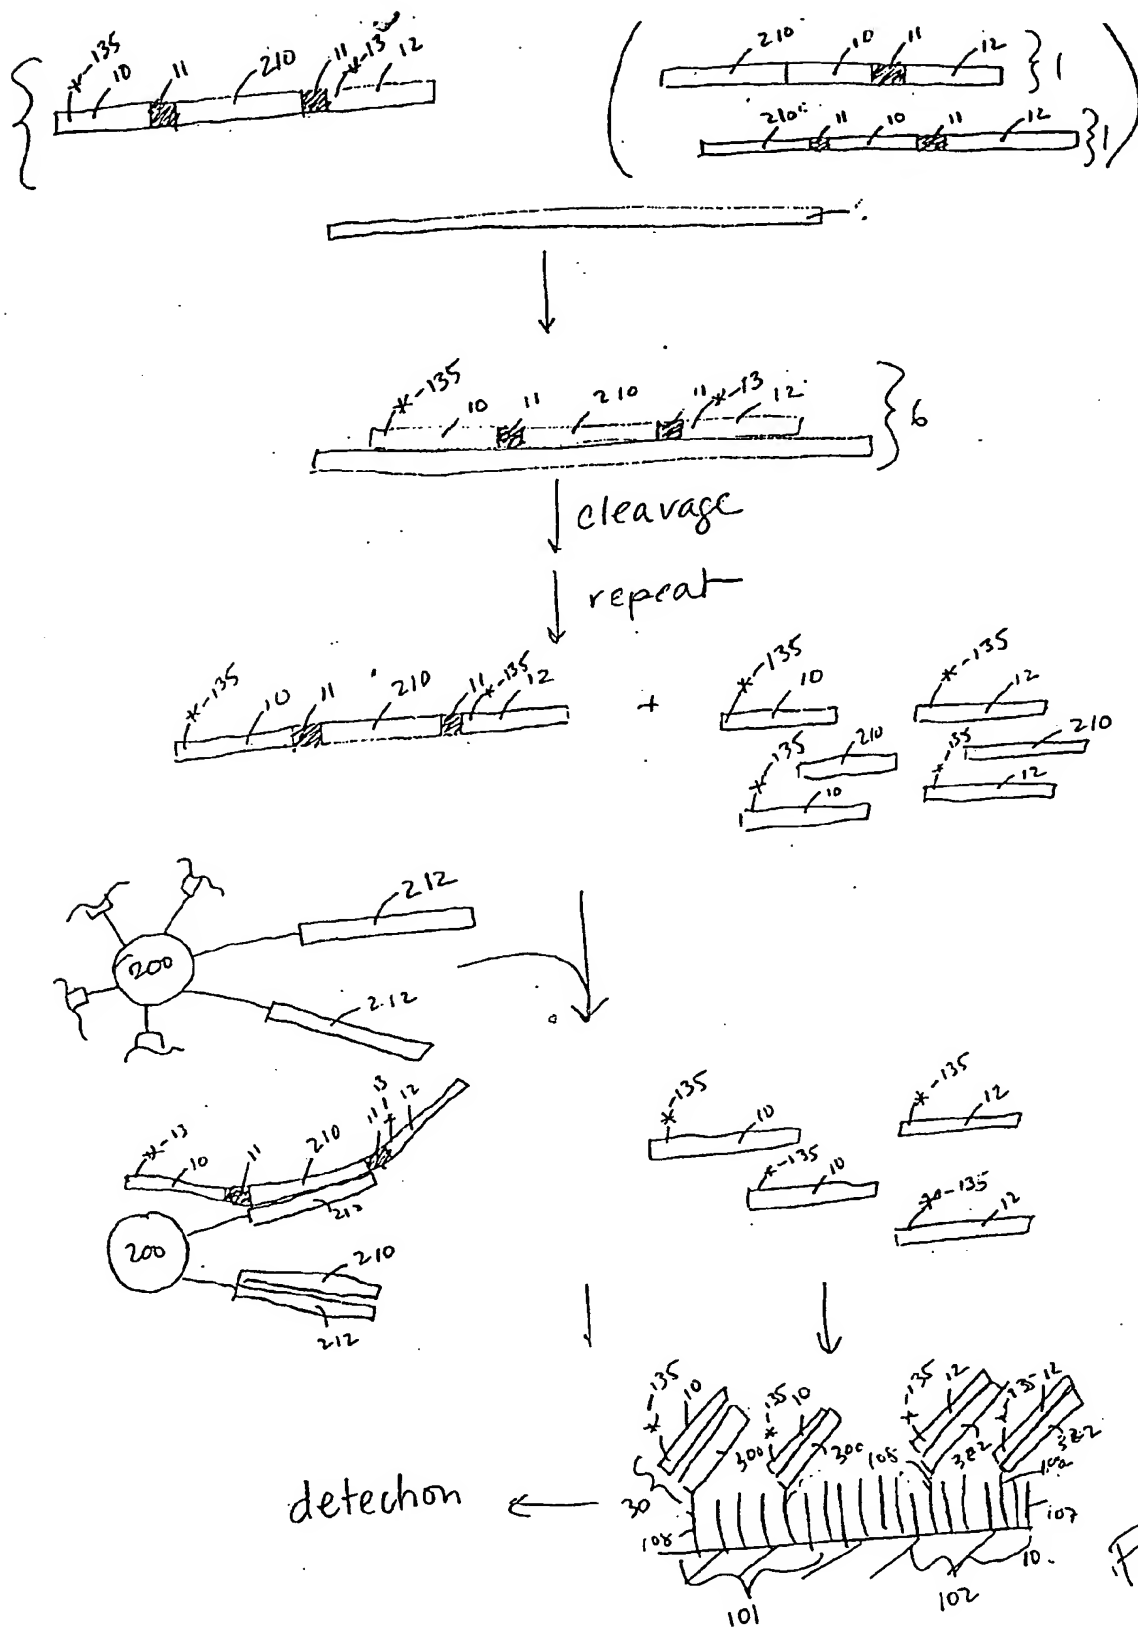 *-135 10 11 210 11 *-13 12
210 10 11 12 1
210 11 10 11 12 1
*-135 10 11 210 11 *-13 12 6
cleavage
repeat
*-135 10 11 210 11 *-135 12 + *-135 10 *-135 12
*-135 210 10 *-135 210 12
212
200
212
*-13 10 11 210 11 13 12
212
200
210
212
*-135 10 *-135 12
*-135 10 *-135 12
*-135 10 *-135 10 *-135 12 *-135 12
300 300 108 322 322
detection 30 108 109 107
101 102 10
F